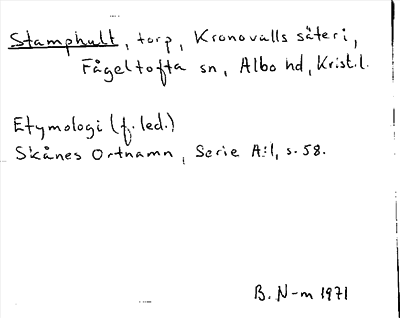 Stamphult, torp, Kronovalls säteri,
Fågeltofta sn, Albo hd, Krist.l.
Etymologi (f. led.)
Skånes Ortnamn, Serie A:1, s. 58.
B. N-m 1971